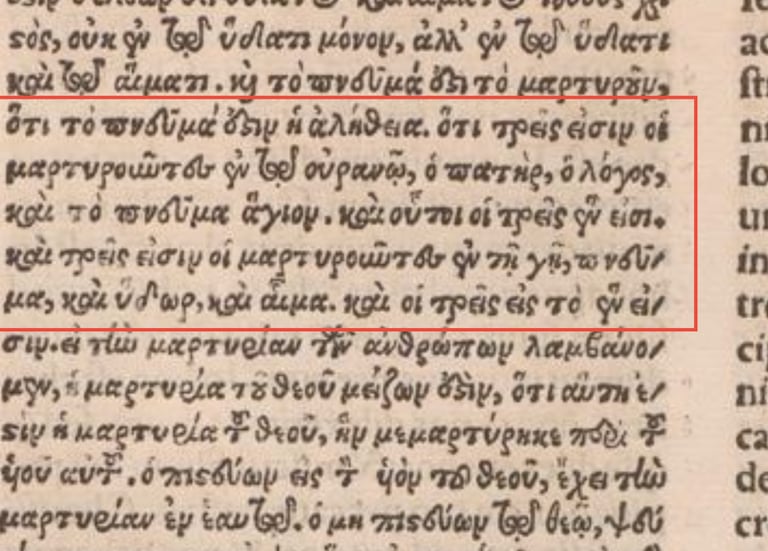 σός, οὐκ ἐν τῷ ὕδατι μόνον, ἀλλ' ἐν τῷ ὕδατι
καὶ τῷ αἵματι. καὶ τὸ πνεῦμά ἐστι τὸ μαρτυροῦν,
ὅτι τὸ πνεῦμά ἐστιν ἡ ἀλήθεια. ὅτι τρεῖς εἰσιν οἱ
μαρτυροιῶτες ἐν τῷ οὐρανῷ, ὁ πατὴρ, ὁ λόγος,
καὶ τὸ πνεῦμα ἅγιον. καὶ οὗτοι οἱ τρεῖς ἕν εἰσι.
καὶ τρεῖς εἰσιν οἱ μαρτυροιῶτες ἐν τῇ γῇ, πνεῦ/
μα, καὶ ὕδωρ, καὶ αἷμα. καὶ οἱ τρεῖς εἰς τὸ ἕν εἰ/
σιν. εἰ τὴν μαρτυρίαν τῶν ἀνθρώπων λαμβάνο/
μεν, ἡ μαρτυρία τοῦ θεοῦ μείζων ἐστὶν, ὅτι αὕτη ἐ/
στὶν ἡ μαρτυρία τοῦ θεοῦ, ἣν μεμαρτύρηκε περὶ τοῦ
ὑοῦ αὐτοῦ. ὁ πιστεύων εἰς τὸν ὑὸν τοῦ θεοῦ, ἔχει τὴν
μαρτυρίαν ἐν ἑαυτῷ. ὁ μὴ πιστεύων τῷ θεῷ, ψεύ